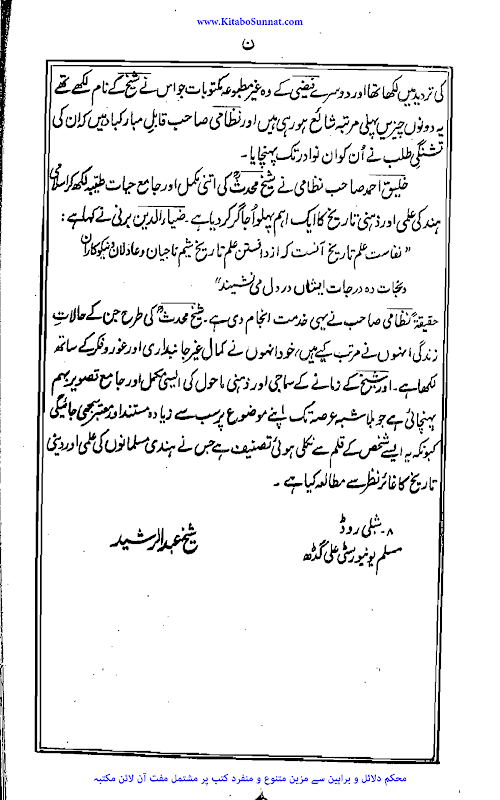 www.KitaboSunnat.com
ن
کی تردید میں لکھا تھا اور دوسرے فیضی کے وہ غیر مطبوعہ مکتوبات جو اس نے شیخ کے نام لکھے تھے
یہ دونوں چیزیں پہلی مرتبہ شائع ہو رہی ہیں اور نظامی صاحب قابلِ مبارکباد ہیں کہ ان کی
تشنگیِ طلب نے اُن کو ان نوادر تک پہنچایا۔
خلیق احمد صاحب نظامی نے شیخ محدثؒ کی اتنی مکمل اور جامع حیات طیبہ لکھ کر اسلامی
ہند کی علمی اور ذہنی تاریخ کا ایک اہم پہلو اُجاگر کر دیا ہے۔ ضیاء الدین برنی نے کہا ہے:
"نفاست علم تاریخ آنست کہ از دانستن علم تاریخ شیم ناجیان و عادلان و نیکوکاران
و نجات و درجات ایشاں در دل می نشیند"
حقیقۃً نظامی صاحب نے یہی خدمت انجام دی ہے۔ شیخ محدثؒ کی طرح جن کے حالاتِ
زندگی انہوں نے مرتب کیے ہیں، خود انہوں نے کمال غیر جانبداری اور غور و فکر کے ساتھ
لکھا ہے۔ اور شیخ کے زمانے کے سماجی اور ذہنی ماحول کی ایسی مکمل اور جامع تصویر بہم
پہنچائی ہے جو بلا شبہ عرصہ تک اپنے موضوع پر سب سے زیادہ مستند اور معتبر سمجھی جائیگی
کیونکہ یہ ایسے شخص کے قلم سے نکلی ہوئی تصنیف ہے جس نے ہندی مسلمانوں کی علمی اور دینی
تاریخ کا غائر نظر سے مطالعہ کیا ہے۔
۸۔ شبلی روڈ
مسلم یونیورسٹی علی گڈھ
شیخ عبد الرشید
محکم دلائل و براہین سے مزین متنوع و منفرد کتب پر مشتمل مفت آن لائن مکتبہ